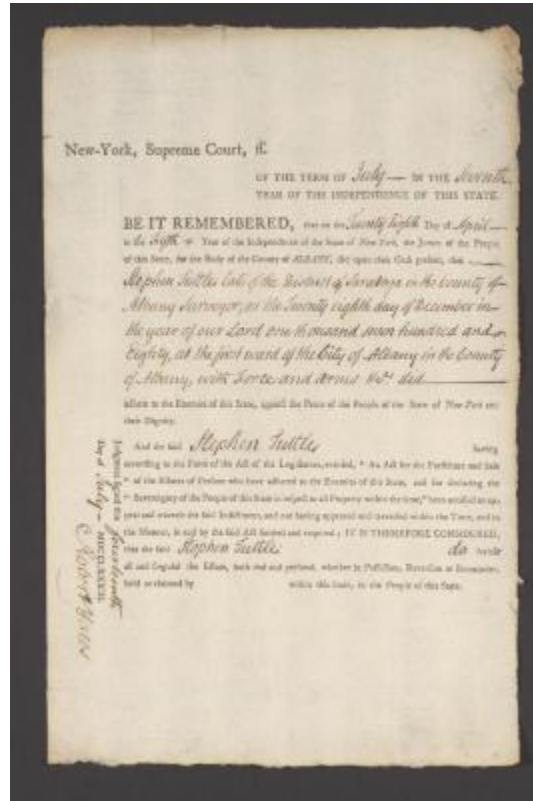 New-York, Supreme Court, ſſ.
OF THE TERM OF July — IN THE Seventh
YEAR OF THE INDEPENDENCE OF THIS STATE.
BE IT REMEMBERED, that on the Twenty Eighth Day of April —
in the Fifth Year of the Independence of the State of New York, the Jurors of the People
of this State, for the Body of the County of ALBANY, did upon their Oath present, that
Stephen Tuttles late of the District of Saratoga in the County of
Albany Surveyor, on the Twenty eighth day of December in
the year of our Lord one thousand seven hundred and
Eighty, at the first ward of the City of Albany in the County
of Albany, with Force and arms &c. did
adhere to the Enemies of this State, against the Peace of the People of the State of New York and
their Dignity.
And the said Stephen Tuttles having
according to the Form of the Act of the Legislature, entitled, " An Act for the Forfeiture and Sale
" of the Estates of Persons who have adhered to the Enemies of this State, and for declaring the
" Sovereignty of the People of this State in respect to all Property within the same," been notified to ap-
pear and traverse the said Indictment, and not having appeared and traversed within the Time, and in
the Manner, in and by the said Act limited and required ; IT IS THEREFORE CONSIDERED,
that the said Stephen Tuttle do forfeit
all and singular the Estate, both real and personal, whether in Possession, Reversion or Remainder,
held or claimed by within this State, to the People of this State.
Judgment signed this fourteenth
Day of July — MDCCLXXXIII.
Robert Yates